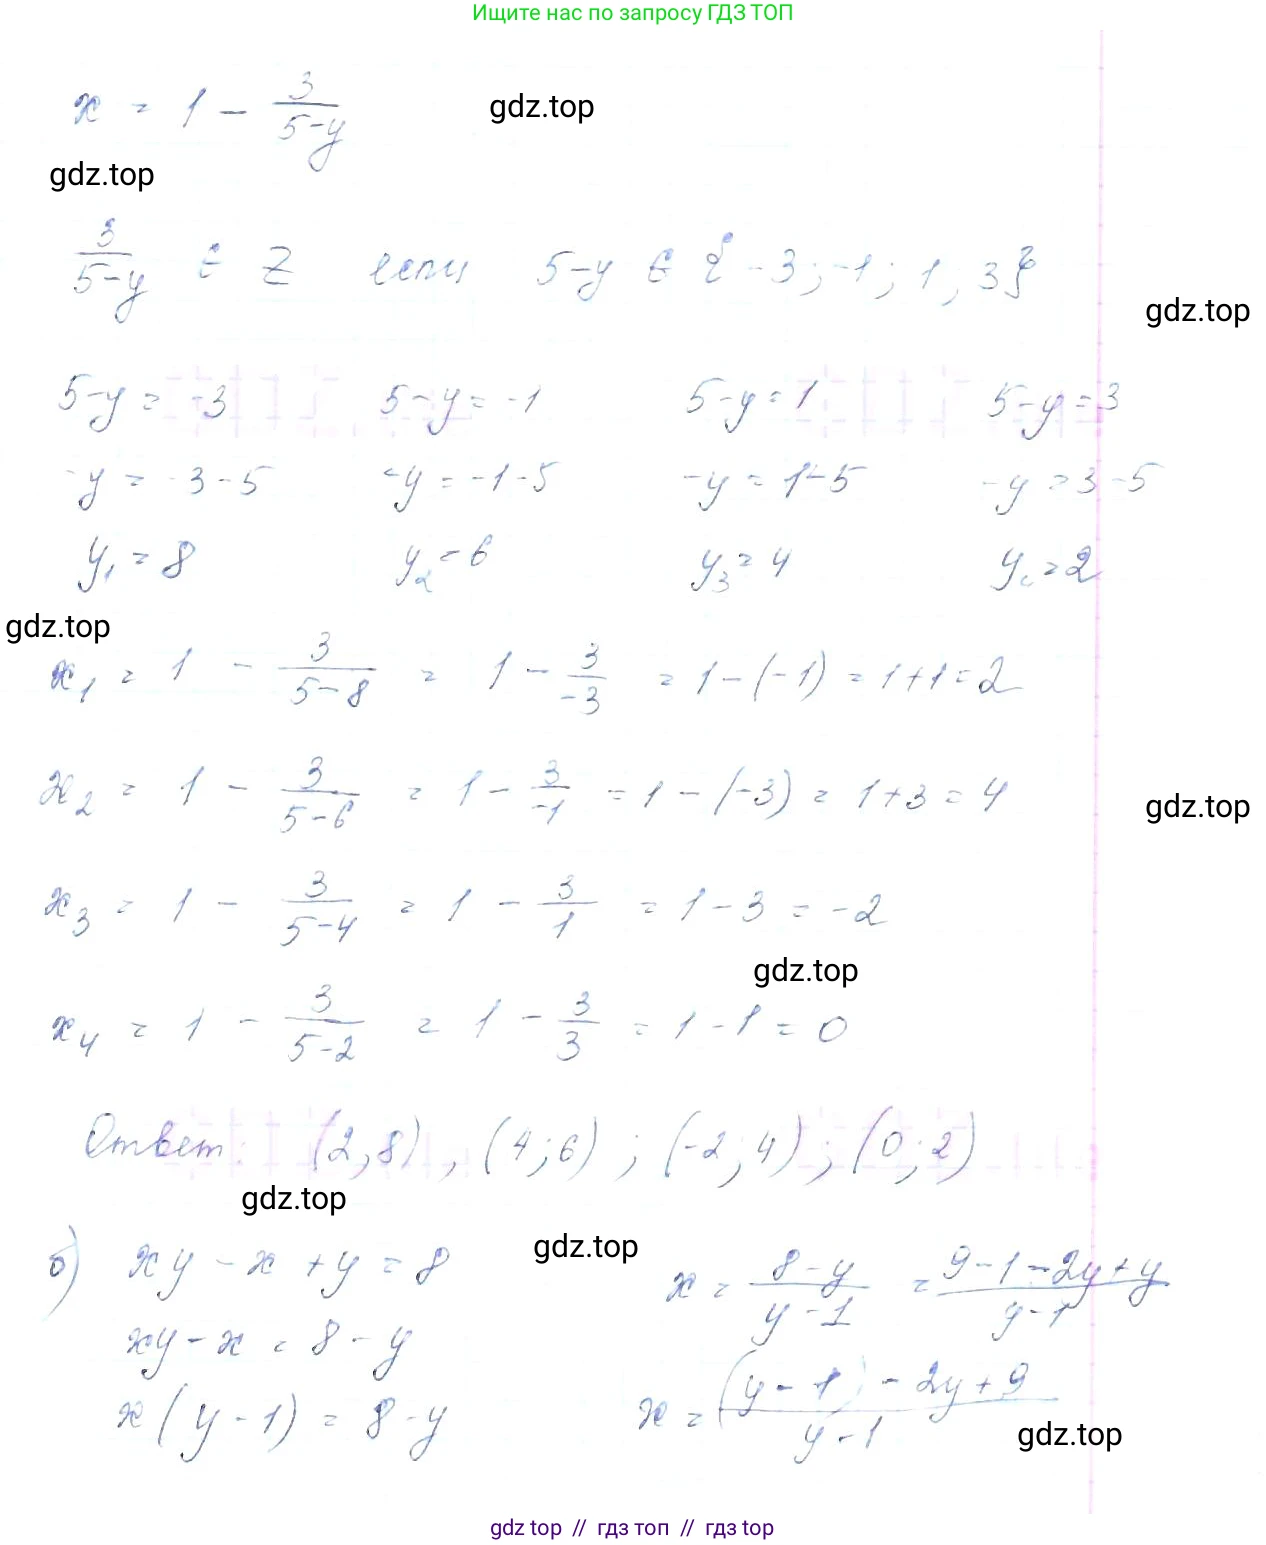 Ищите нас по запросу ГДЗ ТОП
x = 1 - 3/(5-y)
gdz.top
gdz.top
3/(5-y) ∈ Z если 5-y ∈ {-3; -1; 1; 3}
gdz.top
5-y = -3 5-y = -1 5-y = 1 5-y = 3
-y = -3-5 -y = -1-5 -y = 1-5 -y = 3-5
y₁ = 8 y₂ = 6 y₃ = 4 y₄ = 2
gdz.top
x₁ = 1 - 3/(5-8) = 1 - 3/(-3) = 1-(-1) = 1+1 = 2
x₂ = 1 - 3/(5-6) = 1 - 3/(-1) = 1-(-3) = 1+3 = 4
gdz.top
x₃ = 1 - 3/(5-4) = 1 - 3/1 = 1-3 = -2
gdz.top
x₄ = 1 - 3/(5-2) = 1 - 3/3 = 1-1 = 0
Ответ: (2; 8), (4; 6); (-2; 4); (0; 2)
gdz.top
gdz.top
б) xy - x + y = 8 x = (8-y)/(y-1) = (9-1-2y+y)/(y-1)
xy - x = 8 - y
x(y-1) = 8-y x = ((y-1)-2y+9)/(y-1)
gdz.top
gdz top // гдз топ // гдз top